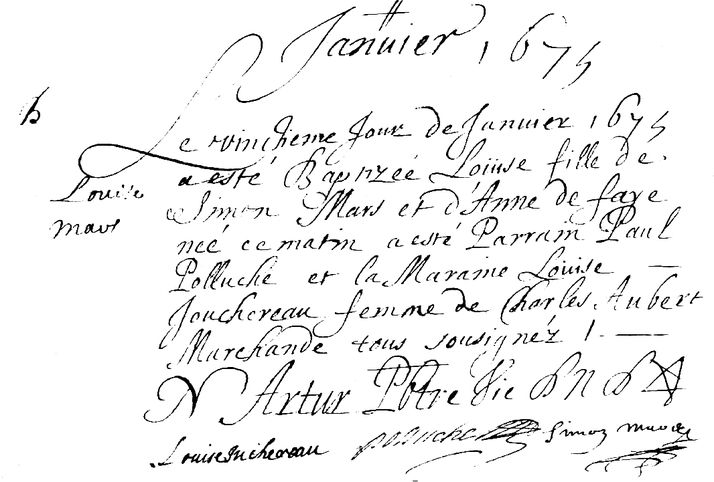 Januier, 1675
b
Le vingtieme Jour de Januier 1675
a esté Baptizeé Louise fille de
Louise
Simon Mars et d'Anne de faye
mars
neé ce matin a esté Parrain Paul
Polluche et la Maraine Louise
Jouchereau femme de Charles Aubert
Marchande tous sousignez !
N Artur Pbtre Vic
Louise Juchereau polluche Simon mars